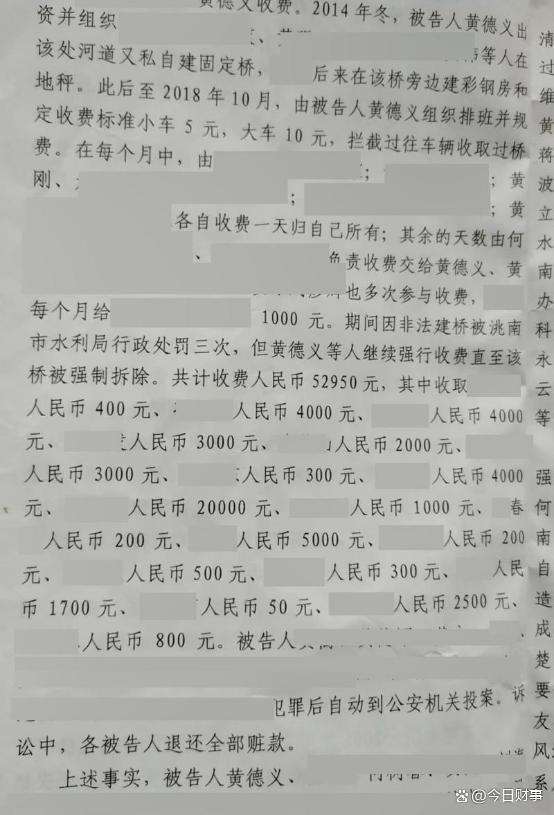 黄德义收费。2014年冬，被告人黄德义出
资并组织
该处河道又私自建固定桥， 等人在
地秤。 后来在该桥旁边建彩钢房和
此后至2018年10月，由被告人黄德义组织排班并规
定收费标准小车5元，大车10元，拦截过往车辆收取过桥
费。在每个月中，由 ； ；黄
刚、 ； ；黄
各自收费一天归自己所有；其余的天数由何
、 负责收费交给黄德义、黄
也多次参与收费，
每个月给 1000元。期间因非法建桥被洮南
市水利局行政处罚三次，但黄德义等人继续强行收费直至该
桥被强制拆除。共计收费人民币52950元，其中收取
人民币400元、 人民币4000元、 人民币4000
元、 人民币3000元、 人民币2000元、
人民币3000元、 人民币300元、 人民币4000
元、 人民币20000元、 人民币1000元、 春
人民币200元、 人民币5000元、 人民币200
元、 人民币500元、 人民币300元、 人民
币1700元、 人民币50元、 人民币2500元、
人民币800元。被告人 、
犯罪后自动到公安机关投案。诉
讼中，各被告人退还全部赃款。
上述事实，被告人黄德义、
清
过
维
黄
蒋
波
立
水
南
办
科
永
云
等
强
何
南
自
造
成
楚
要
友
风
系
@今日财事